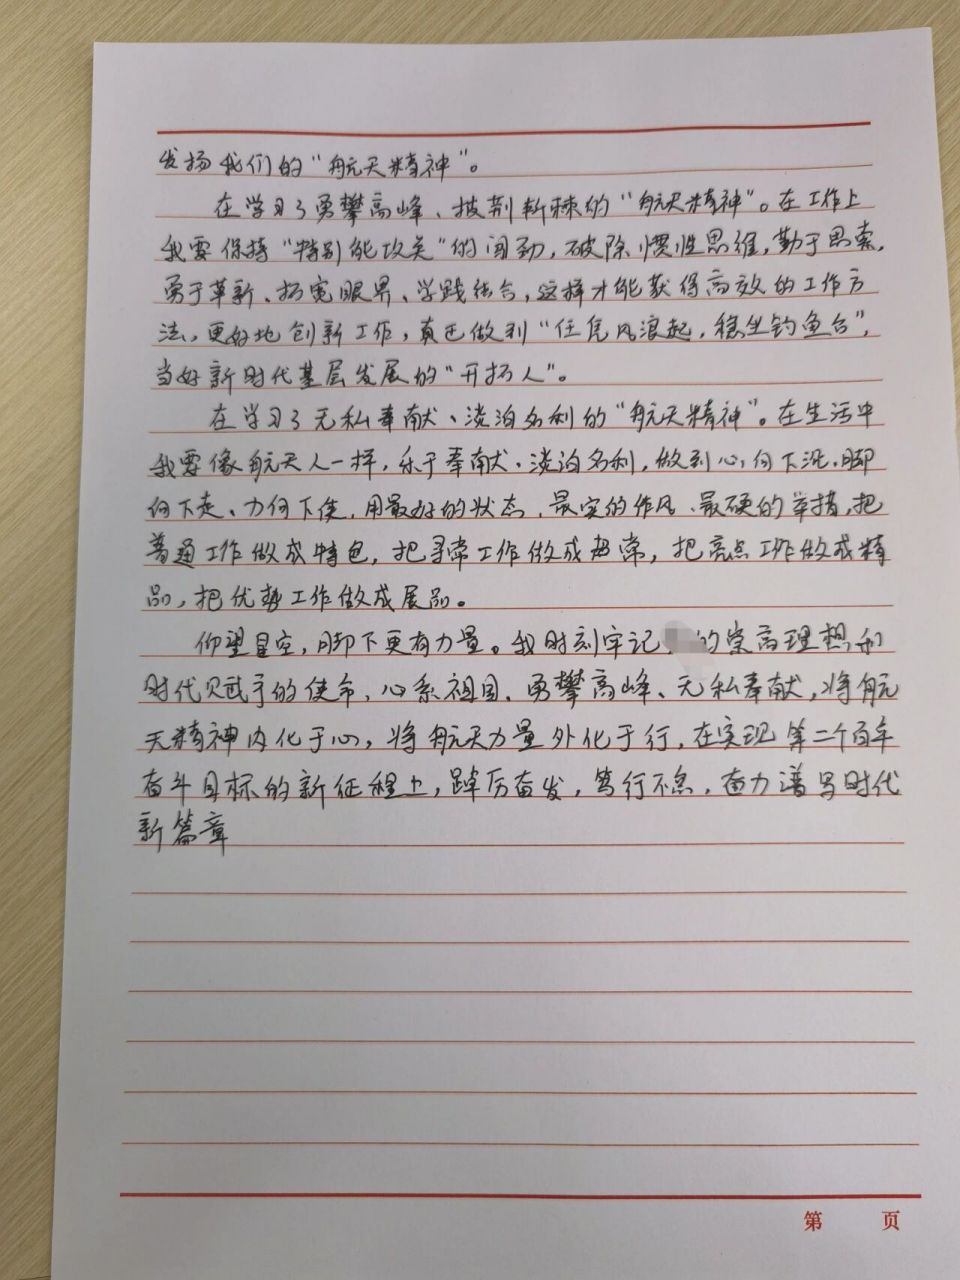 发扬我们的“航天精神”。
在学习了勇攀高峰、披荆斩棘的“航天精神”。在工作上
我要保持“特别能攻关”的闯劲，破除惯性思维，勤于思索，
勇于革新、拓宽眼界、学践结合，这样才能获得高效的工作方
法，更好地创新工作，真正做到“任凭风浪起，稳坐钓鱼台”，
当好新时代基层发展的“开拓人”。
在学习了无私奉献、淡泊名利的“航天精神”。在生活中
我要像航天人一样，乐于奉献、淡泊名利，做到心向下沉、脚
向下走、力向下使，用最好的状态、最实的作风、最硬的举措，把
普通工作做成特色，把寻常工作做成超常，把亮点工作做成精
品，把优势工作做成展品。
仰望星空，脚下更有力量。我时刻牢记的崇高理想和
时代赋予的使命，心系祖国、勇攀高峰、无私奉献，将航
天精神内化于心，将航天力量外化于行，在实现第二个百年
奋斗目标的新征程上，踔厉奋发，笃行不怠，奋力谱写时代
新篇章
第 页